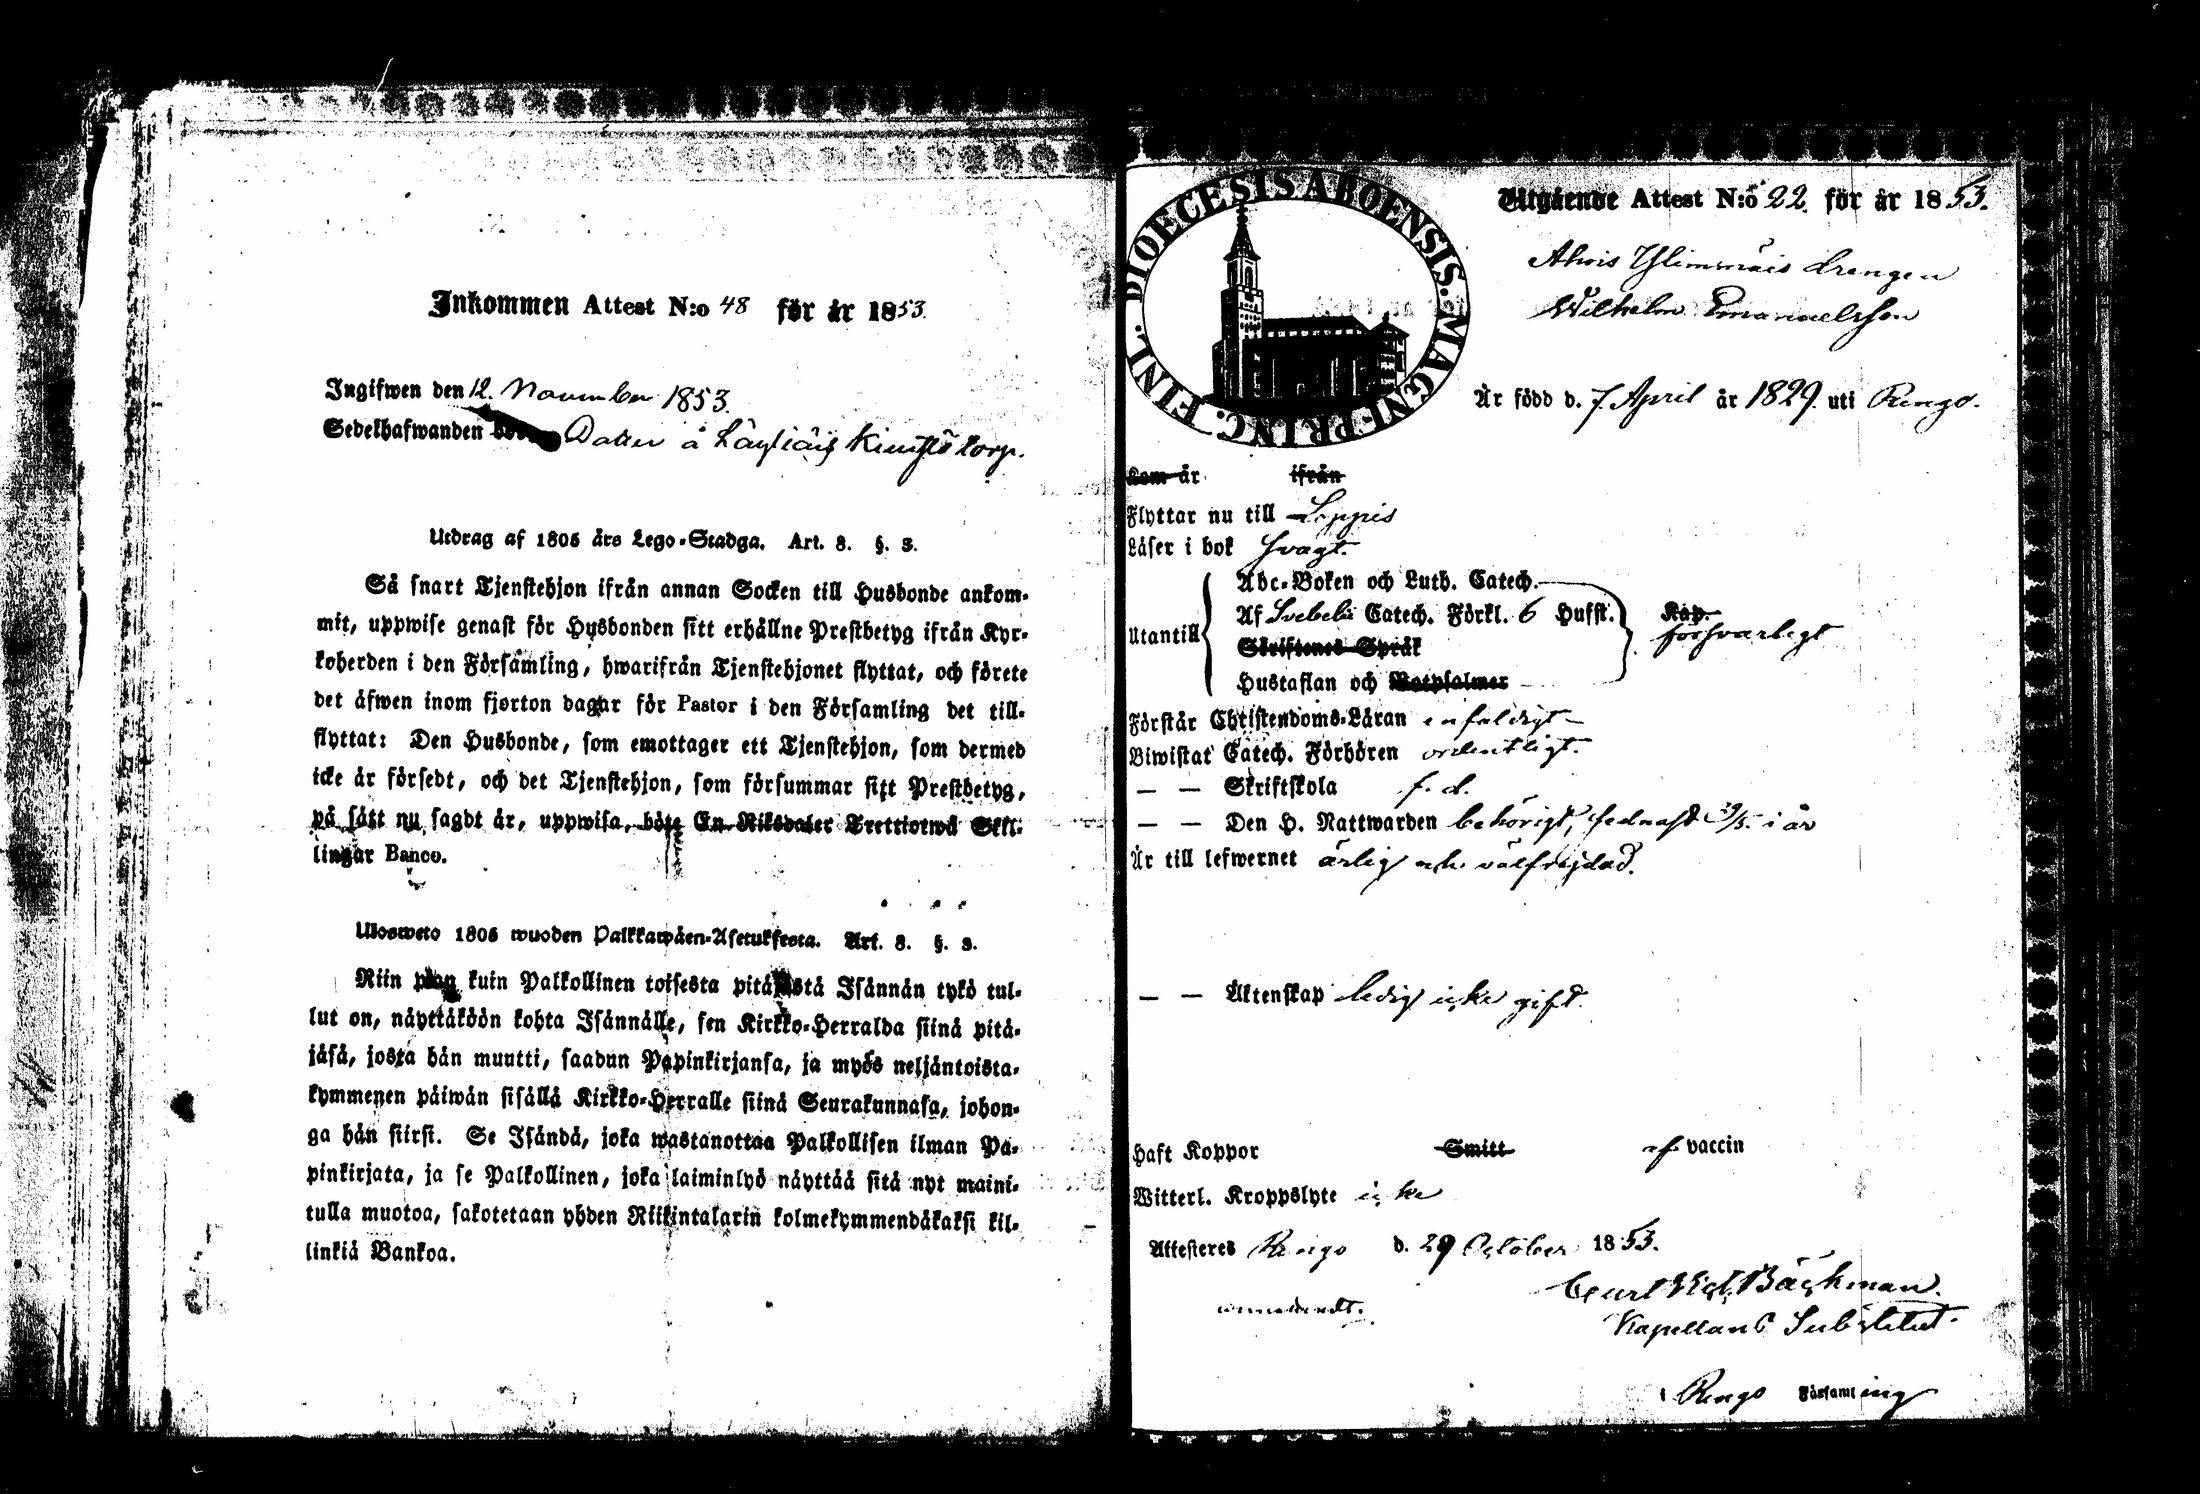 Inkommen Attest N:o 48 för år 1853.
Ingifwen den 12. November 1853.
Sedelhafwanden å torp.
Utdrag af 1805 års Lego-Stadga. Art. 8. §. 3.
Så snart Tjenstehjon ifrån annan Socken till Husbonde ankom-
mit, uppwise genast för Husbonden sitt erhållne Prestbetyg ifrån Kyr-
koherden i den Församling, hwarifrån Tjenstehjonet flyttat, och förete
det äfwen inom fjorton dagar för Pastor i den Församling det till-
flyttat: Den Husbonde, som emottager ett Tjenstehjon, som dermed
icke är försedt, och det Tjenstehjon, som försummar sitt Prestbetyg,
på sätt nu sagdt är, uppwisa, böte En Riksdaler Trettiotwå Skil-
lingar Banco.
Ulosweto 1805 wuoden Palkkawäen-Asetuksesta. Art. 8. §. 3.
Niin pian kuin Palkollinen toisesta pitäjästä Isännän tykö tul-
lut on, näyttäköön kohta Isännälle, sen Kirkko-Herralda siinä pitä-
jäsä, josta hän muutti, saadun Papinkirjansa, ja myös neljäntoista-
kymmenen päiwän sisällä Kirkko-Herralle siinä Seurakunnasa, johon-
ga hän siirsi. Se Isändä, joka wastanottaa Palkollisen ilman Pa-
pinkirjata, ja se Palkollinen, joka laiminlyö näyttää sitä nyt maini-
tulla muotoa, sakotetaan yhden Riikintalarin kolmekymmendäkaksi kil-
linkiä Bankoa.
DIOECESIS ABOENSIS. MAGNI PRINC. FINL.
Utgående Attest N:o 22. för år 1853.
Ahois Yliminäis drengen
Wilhelm Emanuelsson
Är född d. 7. April år 1829. uti Rengo.
Kom år ifrån
Flyttar nu till Loppis
Läser i bok svagt.
Utantill
Abc-Boken och Luth. Catech.
Af Svebelii Catech. Förkl. 6 Hufst. Kap.
försvarligt
Skriftenes Språk
Hustaflan och Botpsalmer
Förstår Christendoms-Läran enfaldigt
Biwistat Catech. Förhören ordentligt.
— — Skriftskola f. d.
— — Den H. Nattwarden behörigt, sednast 29/5. i år
Är till lefwernet ärlig och välfrejdad.
— — Äktenskap ledig icke gift.
Haft Koppor Smitt af vaccin
Witterl. Kroppslyte icke
Attesteres Rengo d. 29 October 1853.
Carl Bäckman.
Kapellans Substitut.
i Rengo Församling